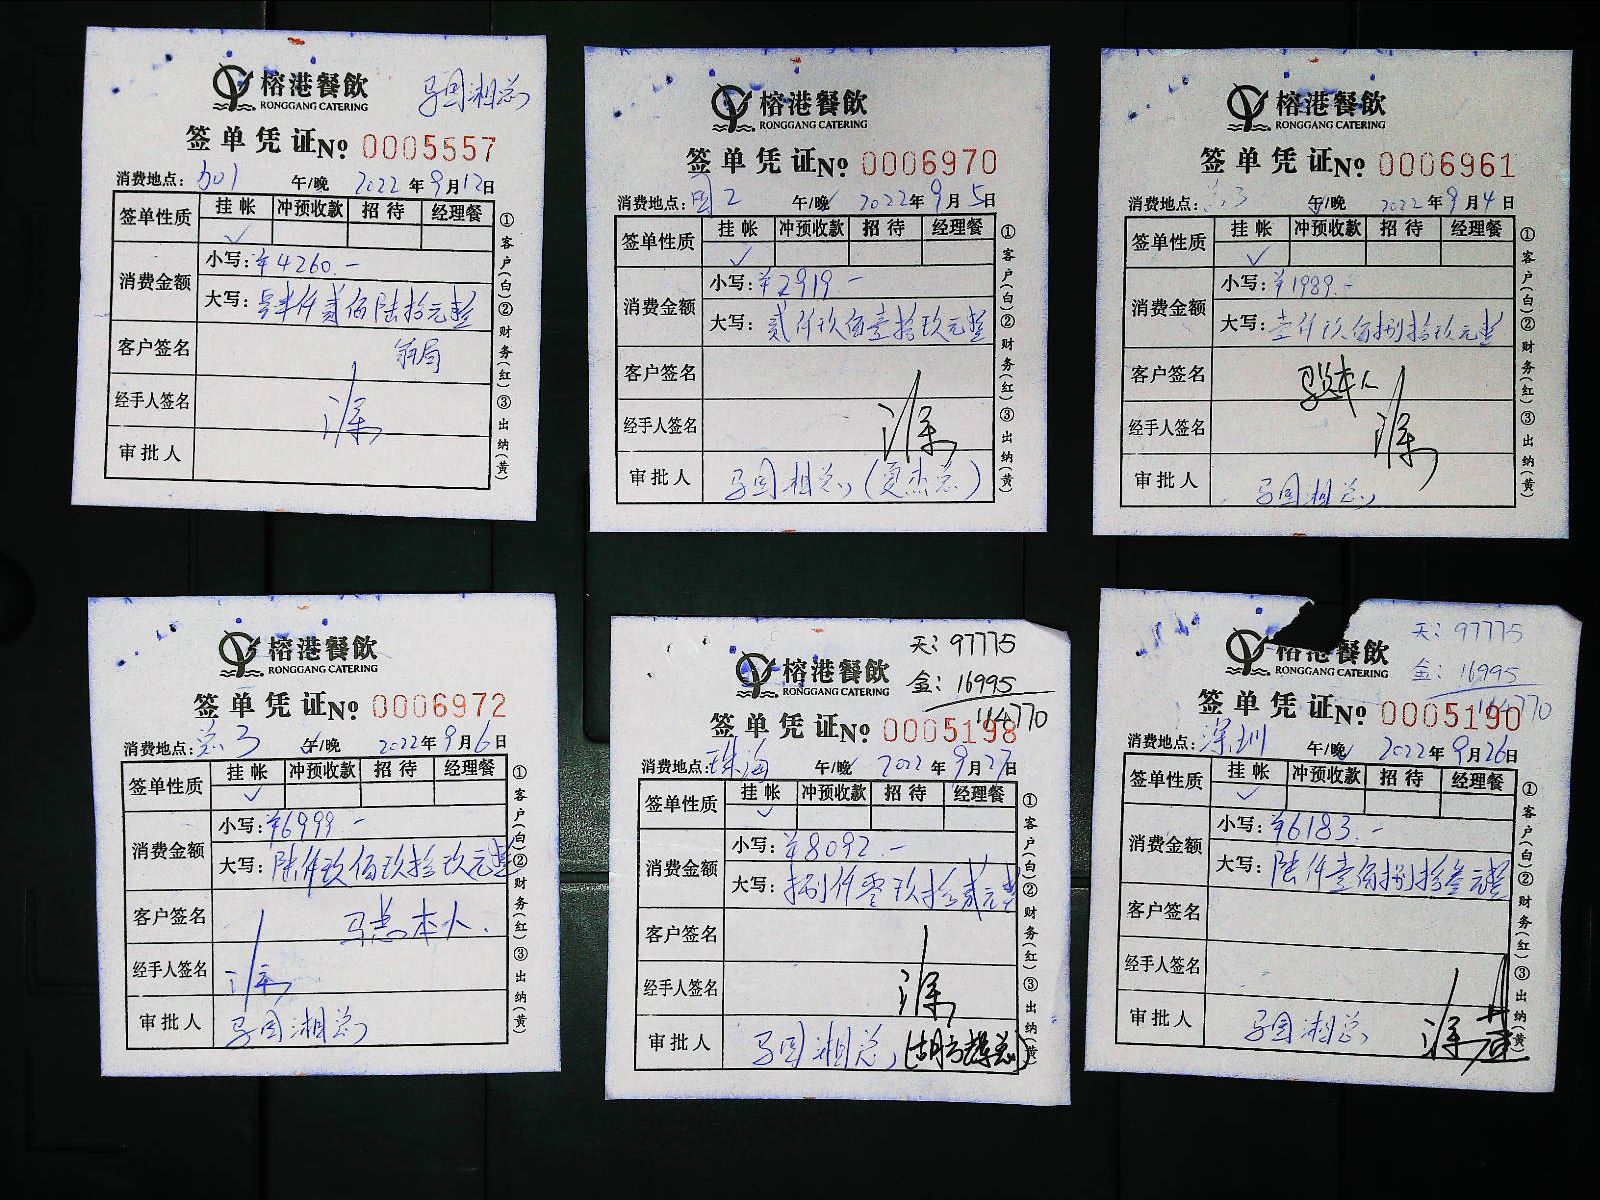 榕港餐飲
RONGGANG CATERING
马国湘总
签单凭证No 0005557
消费地点: 午/晚 2022年9月12日
签单性质 挂帐 冲预收款 招待 经理餐
✓
消费金额 小写:¥4260.-
大写: 肆仟贰佰陆拾元整
客户签名
经手人签名
审批人
①客户(白)②财务(红)③出纳(黄)
榕港餐飲
RONGGANG CATERING
签单凭证No 0006970
消费地点:国2 午/晚 2022年9月5日
签单性质 挂帐 冲预收款 招待 经理餐
✓
消费金额 小写:¥2919-
大写:贰仟玖佰壹拾玖元整
客户签名
经手人签名
审批人 马国湘总(夏杰总)
①客户(白)②财务(红)③出纳(黄)
榕港餐飲
RONGGANG CATERING
签单凭证No 0006961
消费地点: 午/晚 2022年9月4日
签单性质 挂帐 冲预收款 招待 经理餐
✓
消费金额 小写:¥1989.-
大写:壹仟玖佰捌拾玖元整
客户签名 马总本人
经手人签名
审批人 马国湘总
①客户(白)②财务(红)③出纳(黄)
榕港餐飲
RONGGANG CATERING
签单凭证No 0006972
消费地点:总3 午/晚 2022年9月6日
签单性质 挂帐 冲预收款 招待 经理餐
✓
消费金额 小写:¥6999-
大写:陆仟玖佰玖拾玖元整
客户签名 马总本人.
经手人签名
审批人 马国湘总
①客户(白)②财务(红)③出纳(黄)
天:97775
金:16995
114770
榕港餐飲
RONGGANG CATERING
签单凭证No 0005198
消费地点:珠海 午/晚 2022年9月27日
签单性质 挂帐 冲预收款 招待 经理餐
✓
消费金额 小写:¥8092.-
大写:捌仟零玖拾贰元整
客户签名
经手人签名
审批人 马国湘总
①客户(白)②财务(红)③出纳(黄)
天:97775
金:16995
114770
榕港餐飲
RONGGANG CATERING
签单凭证No 0005190
消费地点:深圳 午/晚 2022年9月26日
签单性质 挂帐 冲预收款 招待 经理餐
✓
消费金额 小写:¥6183.-
大写:陆仟壹佰捌拾叁元整
客户签名
经手人签名
审批人 马国湘总
①客户(白)②财务(红)③出纳(黄)